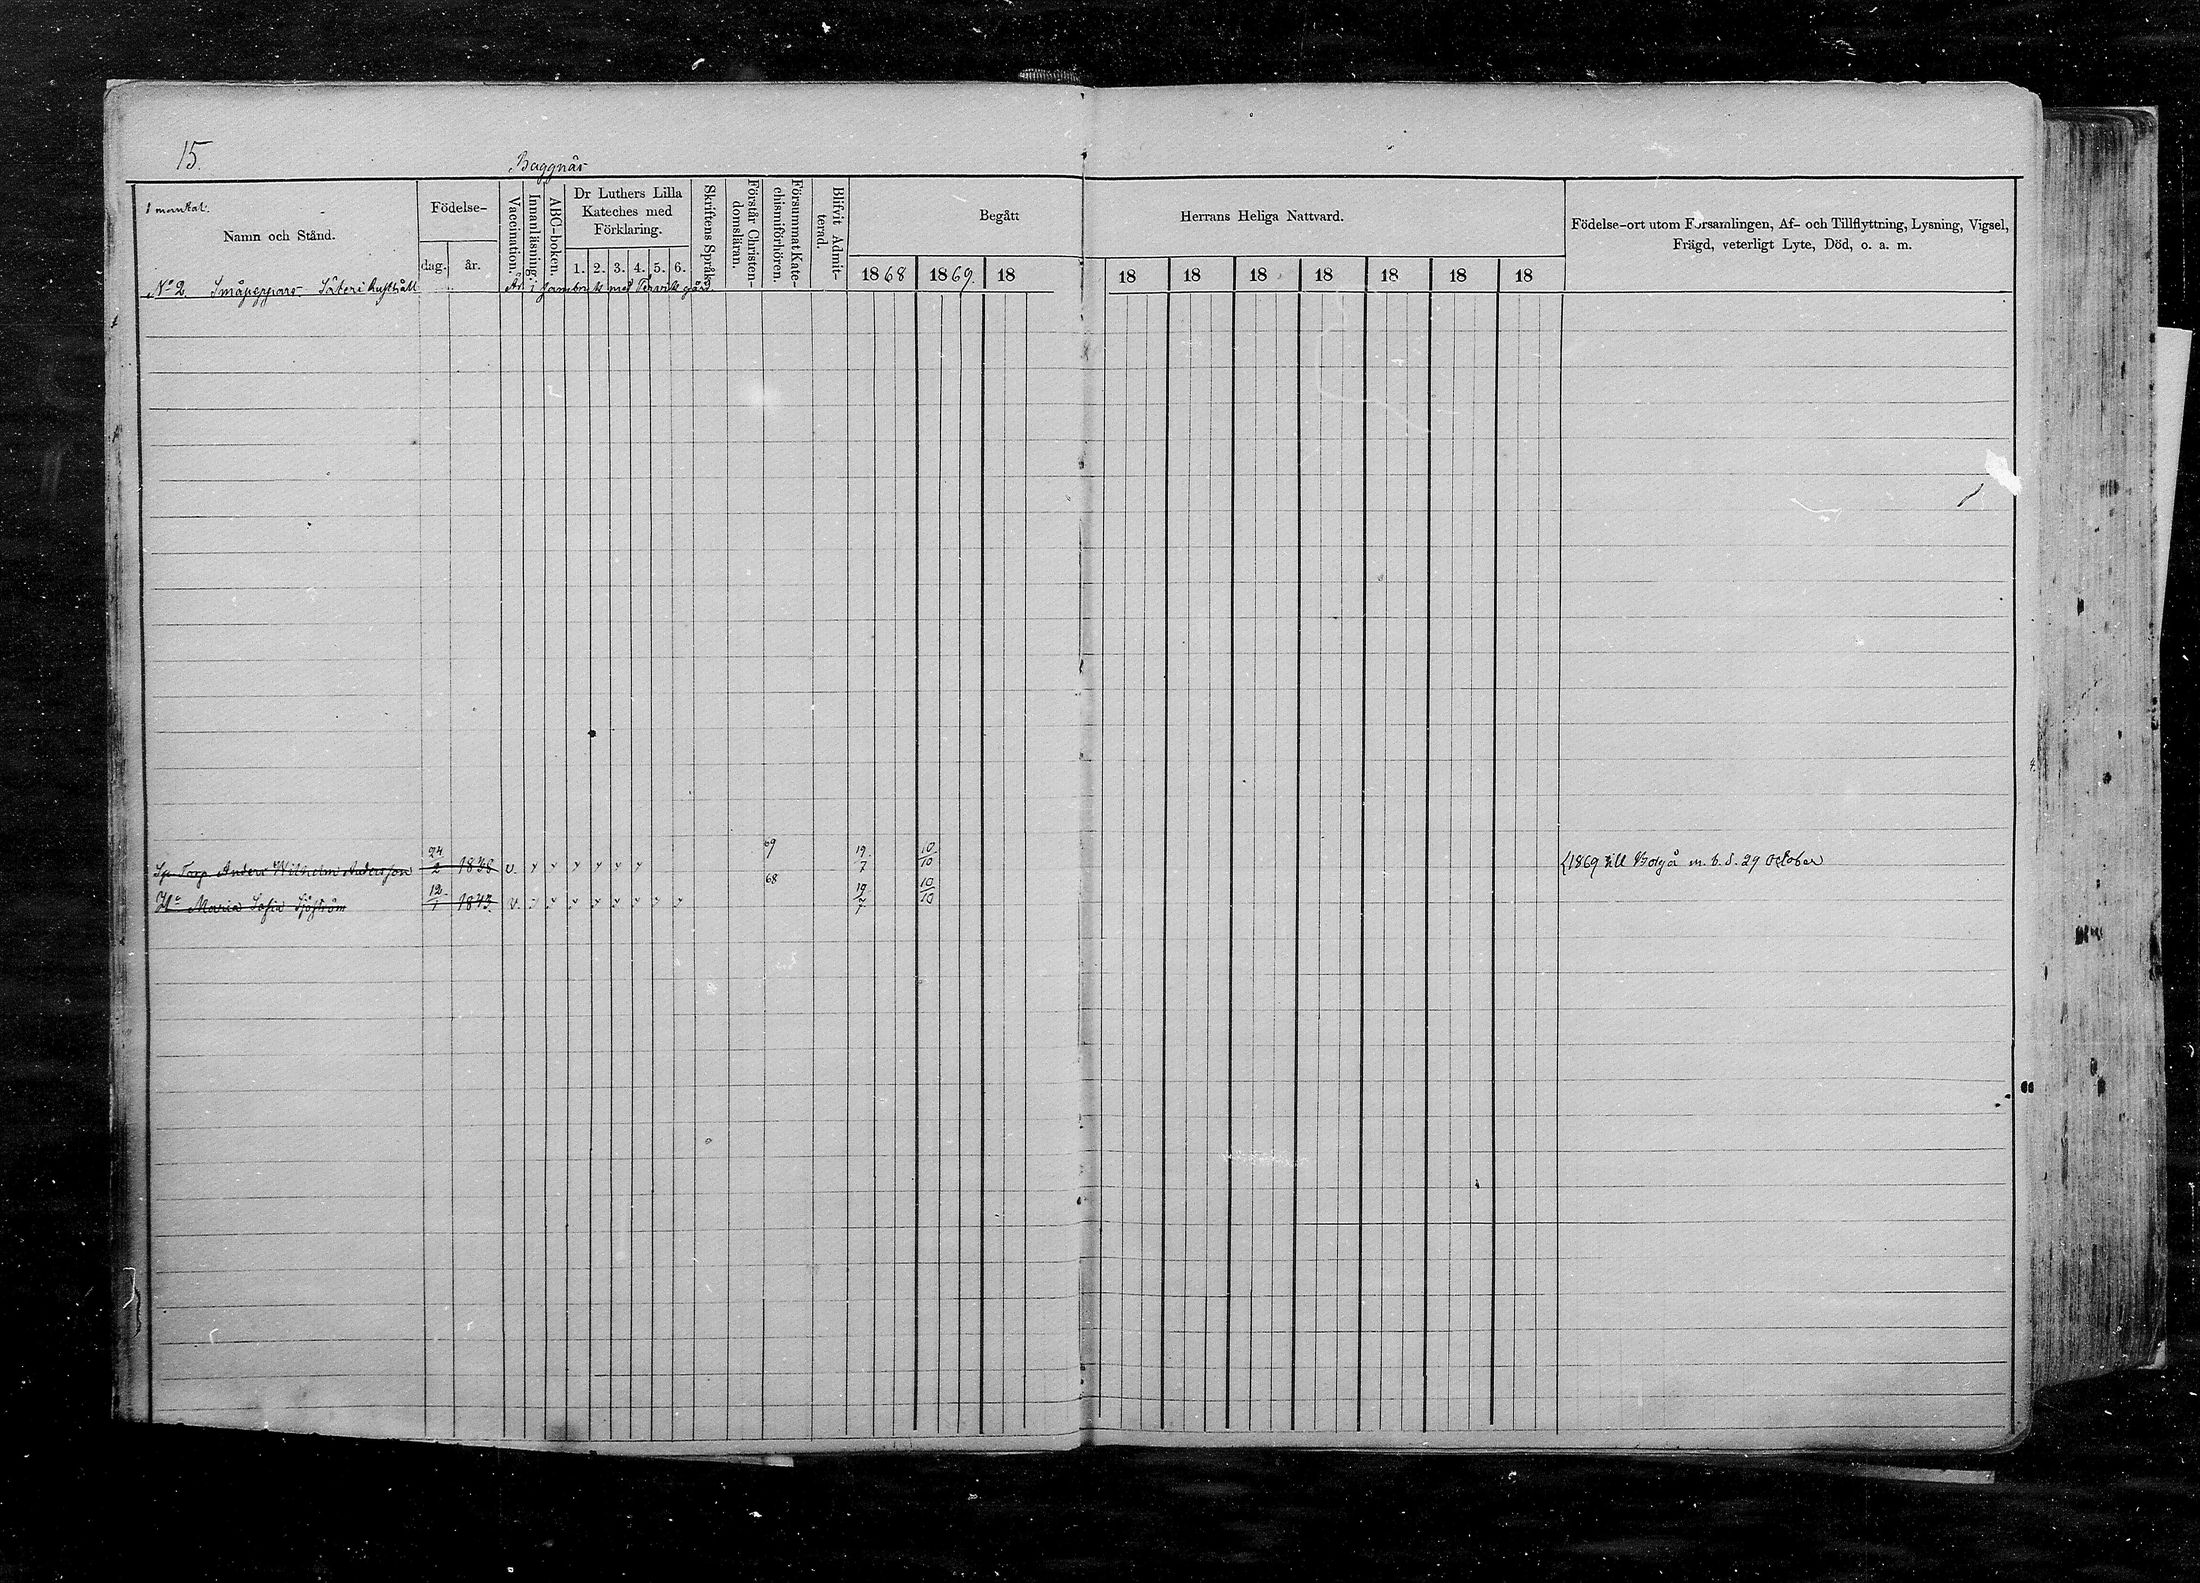 15.
Baggnäs
1 mantal.
Namn och Stånd.
Födelse-
dag. år.
Vaccination.
Innanläsning.
ABC-boken.
Dr Luthers Lilla
Kateches med
Förklaring.
1. 2. 3. 4. 5. 6.
Skriftens Språk.
Förstår Christen-
domsläran.
Försummat Kate-
chismiförhören.
Blifvit Admit-
terad.
Begått Herrans Heliga Nattvard.
1868 1869. 18 18 18 18 18 18 18 18
Födelse-ort utom Församlingen, Af- och Tillflyttning, Lysning, Vigsel,
Frägd, veterligt Lyte, Död, o. a. m.
No 2. Småpeppars Säteri Är i sambruk med gård.
Sp Torp Anders Wilhelm Andersson 24/2 1838 v. 69 19/7 10/10 1869 till Borgå m. b. d. 29 October
Hu Maria Sofia Sjöström 12/7 1843. v. 68 19/7 10/10